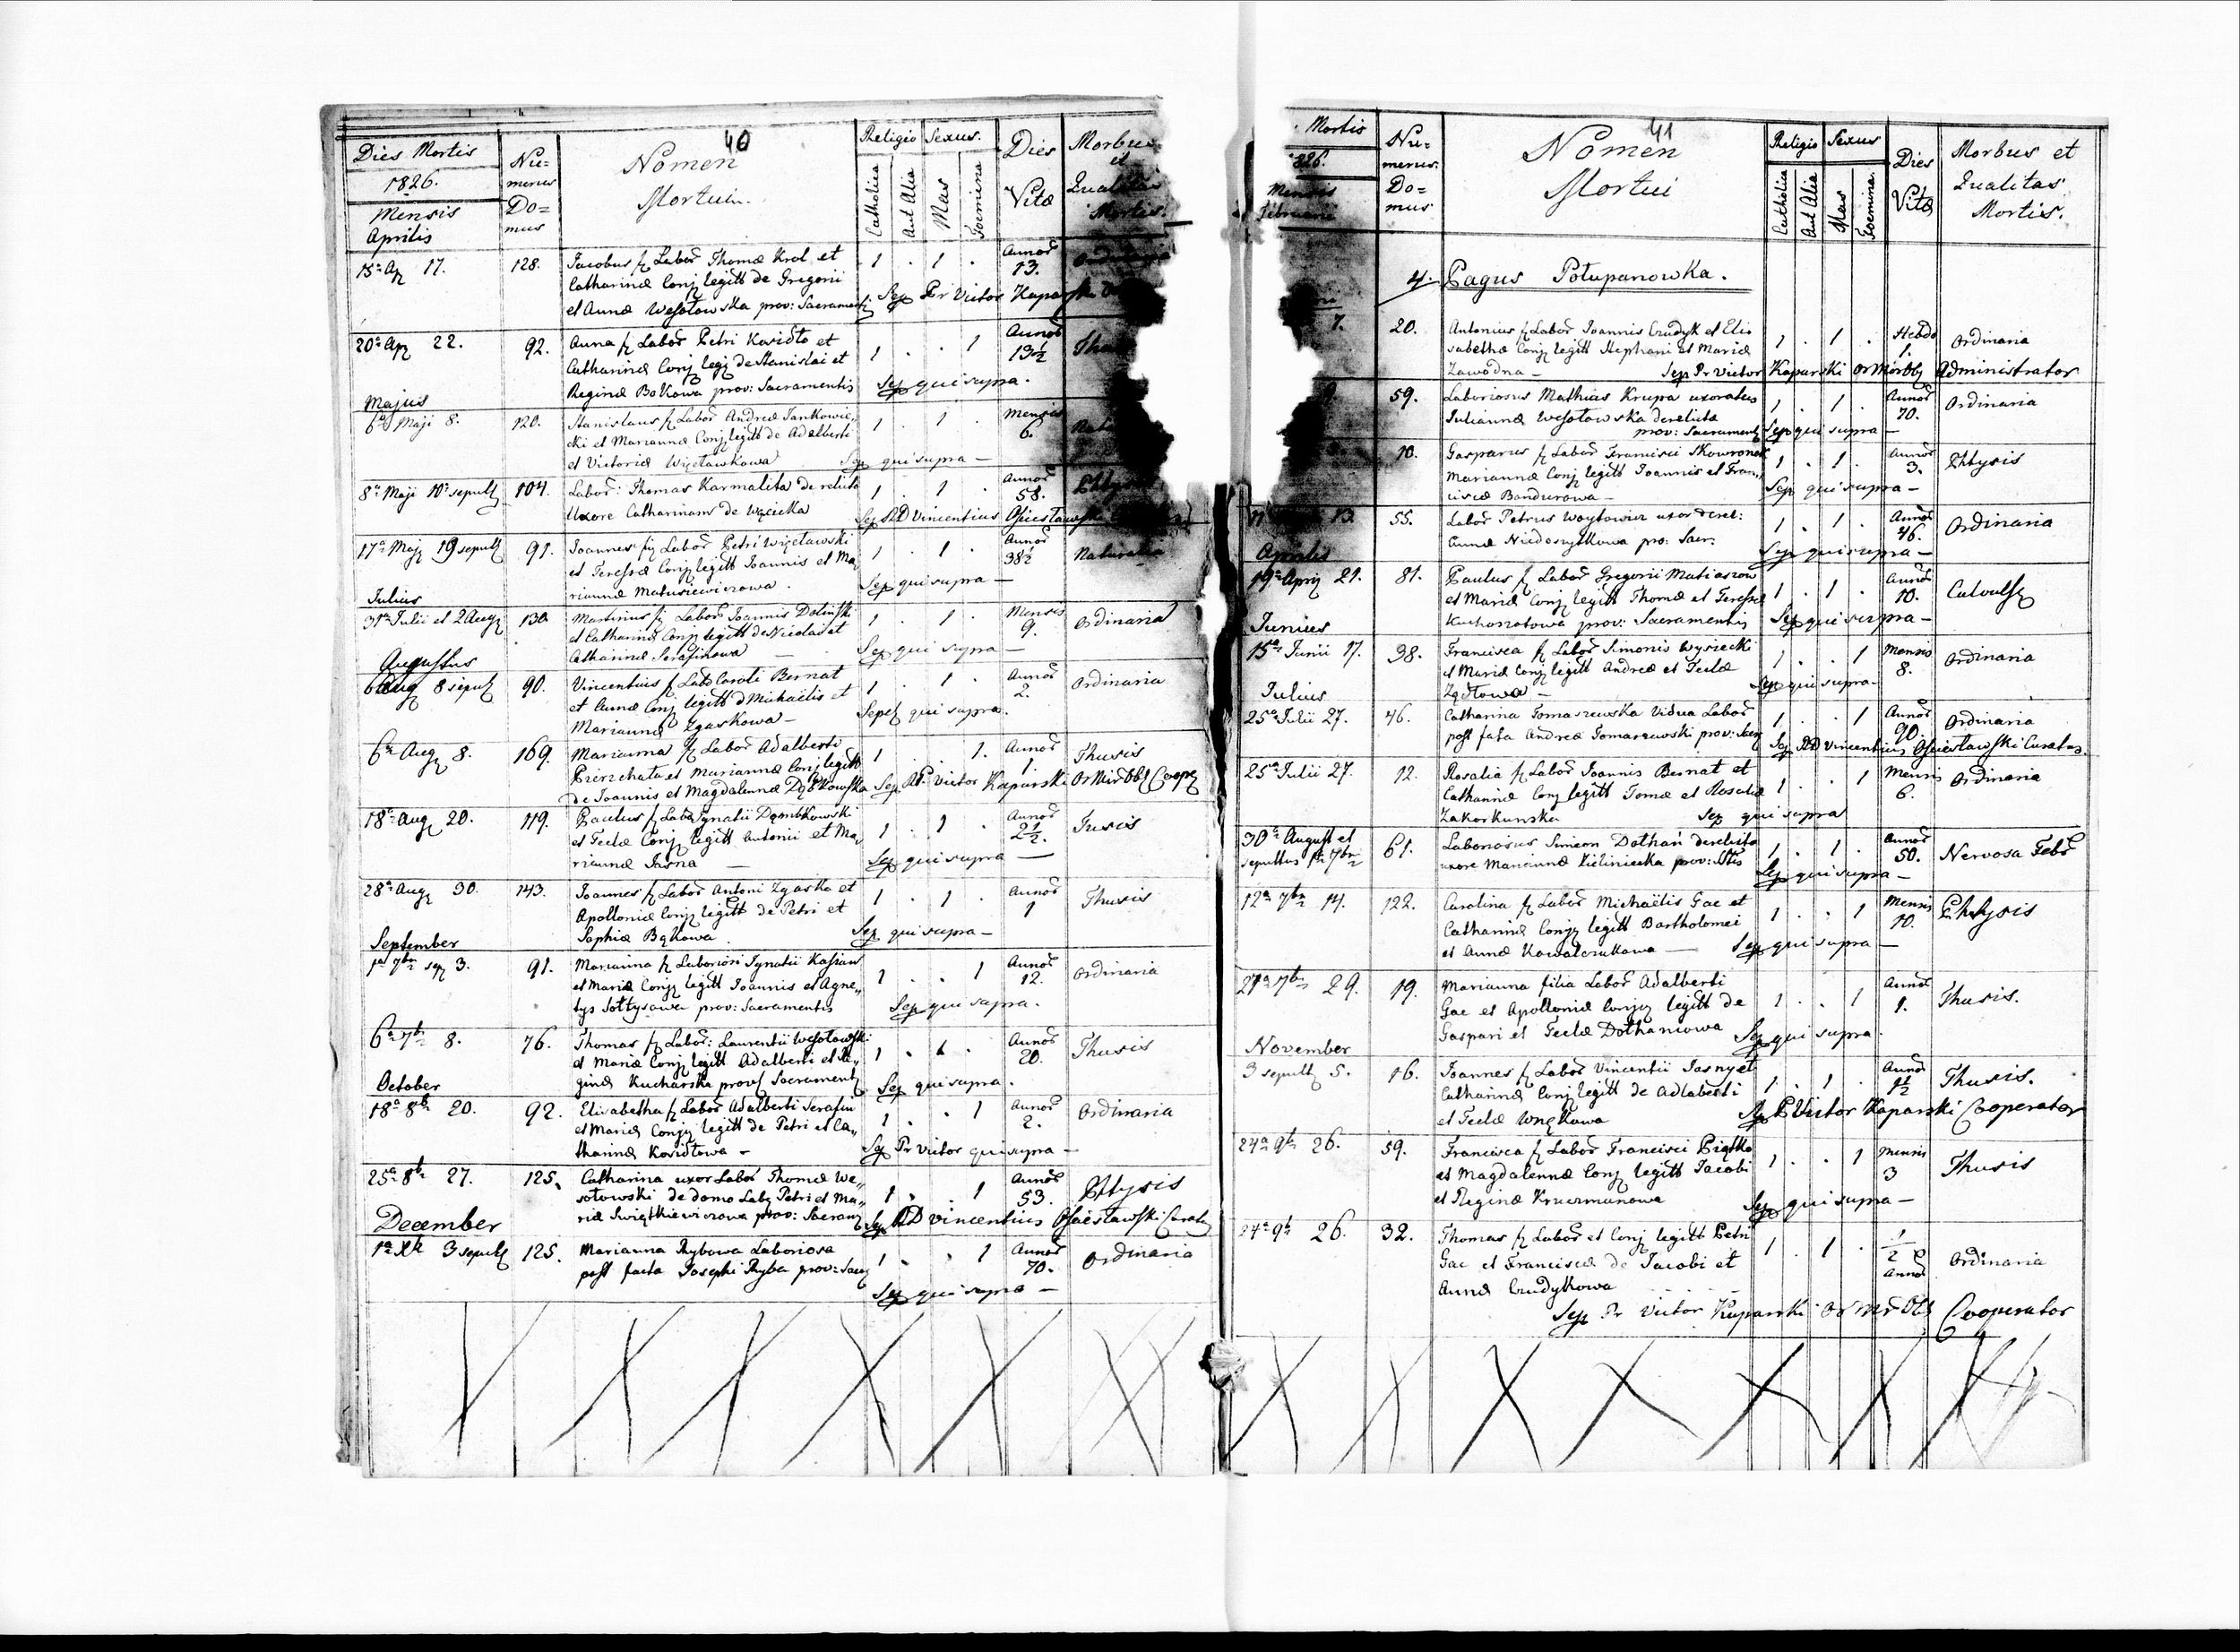 40
Dies Mortis
1826.
Mensis
Aprilis
Nu=
merus
Do=
mus
Nomen
Mortui.
Religio
Catholica
Aut Alia
Sexus.
Mas
Foemina
Dies
Vitæ
Morbus
et
Qualitas
Mortis.
15a Ap 17. 128. Jacobus f Labor Thomæ Krol et 1 . 1 . Annor 13. Ordinaria
Catharinæ Conj legitt de Gregorii
et Annæ Wesołowska prov: Sacrament Sep Pr Victor Kaparski
20a Ap 22. 92. Anna f Labor Petri Kosidło et 1 . . 1 Annor 13½
Catharinæ Conj legi de Stanislai et
Reginæ Bąkowa prov: Sacramentis Sep qui supra.
Majus
6ta Maji 8. 120. Stanislaus f Labor Andreæ Jankowie, 1 . 1 . Mensis 6.
cki et Mariannæ Conj legitt de Adalberti
et Victoriæ Wizetawkowa Sep qui supra —
8a Maji 10a sepult 104. Labor: Thomas Karmalita de relicta 1 . 1 . Annor 58.
Uxore Catharinam de Wącicka Sep RD Vincentius
17a Maj 19 sepult 91. Joannes f Labor Petri Wizetawski 1 . 1 . Annor 38½ Naturalis
et Teressæ Conj legitt Joannis et Ma
riannæ Matusiewiczowa. Sep qui supra —
Julius
31a Julii et 2 Aug 130. Martinus f Labor Joannis Doliński 1 . 1 . Mensis 9. Ordinaria
et Catharinæ Conj legitt de Nicolai et
Catharinæ Serafinowa — Sep qui supra —
Augustus
6 Aug 8 sepult 90. Vincentius f Labor Caroli Bernat 1 . 1 . Annor 2. Ordinaria
et Annæ Conj legitt d Michaëlis et
Mariannæ Zgaskowa — Sepel qui supra.
6a Aug 8. 169. Marianna f Labor Adalberti 1 . . 1. Annor 1. Thusis
et Mariannæ Conj legitt
de Joannis et Magdalennæ Dąbkowska Sep RP Victor Kaparski Or Coope
18a Aug 20. 119. Paulus f Labor Ignatii Dembkowski 1 . 1 . Annor 2½. Tusis
et Teclæ Conj legitt Antonii et Ma,
riannæ Jasna — Sep qui supra —
28a Aug 30. 143. Joannes f Labor Antoni Zgaska et 1 . 1 . Annor 1 Thusis
Apolloniæ Conj legitt de Petri et
Sophiæ Bąkowa. Sep qui supra —
September
1a 7br sep 3. 91. Marianna f Laboriosi Ignatii Kassian 1 . . 1 Annor 12. Ordinaria
et Mariæ Conj legitt Joannis et Agne,,
tys Sołtysowa prov: Sacramentis Sep qui supra.
6a 7br 8. 76. Thomas f Labor: Laurentii Wesołowski 1 . 1 . Annor 20. Thusis
et Mariæ Conj legitt Adalberti et Re,,
ginæ Kucharska prov Sacrament Sep qui supra.
October
18a 8br 20. 92. Elisabetha f Labor Adalberti Serafin 1 . . 1 Annor 2. Ordinaria
et Mariæ Conj legitt de Petri et Ca,,
tharinæ Kosidłowa — Sep Pr Victor qui supra —
25a 8br 27. 125. Catharina uxor Labor Thomæ We,, 1 . . 1 Annor 53. Phtysis
sołowski de domo Lab Petri et Ma,,
riæ Swiątkiewiczowa prov: Sacram Sep RD Vincentius Curat
December
1a Xbr 3 sepult 125. Marianna Rybowa Laboriosa 1 . . 1 Annor 70. Ordinaria
post facta Josephi Ryba prov: Sacr Sep qui supra —
41
Mortis
1826.
Mensis
Februarii
Nu=
merus.
Do=
mus
Nomen
Mortui
Religio
Catholica
Aut Alia
Sexus
Mas
Foemina.
Dies
Vitæ
Morbus et
Qualitas
Mortis.
4. Pagus Połupanowka.
7. 20. Antonius f Labor Joannis Crudyk et Elis 1 . 1 . Hebdo 1. Ordinaria
sabethæ Conj legitt Stephani et Mariæ
Zawodna — Sep Pr Victor Kaparski Administrator
59. Laboriosus Mathias Krupa uxoratus 1 . 1 . Annor 70. Ordinaria
Juliannæ Wesołowska derelicta
prov: Sacrament Sep qui supra —
10. Gasparus f Labor Francisci Skowronek 1 . 1 . Annor 3. Phtysis
Mariannæ Conj legitt Joannis et Fran,,
ciscæ Bandurowa — Sep qui supra —
13. 55. Labor Petrus Woytowicz uxor derel: 1 . 1 . Annor 46. Ordinaria
Annæ pro: Sacr. Sep qui supra —
Aprilis
19a April 21. 81. Paulus f Labor Gregorii Matiaszow 1 . 1 . Annor 10.
et Mariæ Conj legitt Thomæ et Teressæ
prov: Sacramentis Sep qui supra —
Junius
15a Junii 17. 38. Francisca f Labor Simonis Wysiecki 1 . . 1 Mensis 8. Ordinaria
et Mariæ Conj legitt Andreæ et Teclæ
Sep qui supra —
Julius
25a Julii 27. 46. Catharina Tomaszewska Vidua Labor 1 . . 1 Annor 90. Ordinaria
post fata Andreæ Tomaszewski prov: Sacr Sep RD Vincentius Curatus.
25a Julii 27. 12. Rosalia f Labor Joannis Bernat et 1 . . 1 Mensis 6. Ordinaria
Catharinæ Conj legitt Tomæ et Rosaliæ
Zakorkunska Sep qui supra
30a August et 61. Laboriosus Simeon Dothań derelicta 1 . 1 . Annor 50. Nervosa Febr
sepultus 1a 7bri uxore Mariannæ Kieliniecka prov: Sep qui supra —
12a 7br 14. 122. Carolina f Labor Michaëlis Gac et 1 . . 1 Mensis 10. Phtysis
Catharinæ Conj legitt Bartholomei
et Annæ Kowalczukowa — Sep qui supra —
27a 7br 29. 19. Marianna filia Labor Adalberti 1 . . 1 Annor 1. Thusis.
Gac et Apolloniæ Conj legitt de
Gaspari et Teclæ Dothaniowa Sep qui supra.
November
3 sepult 5. 16. Joannes f Labor Vincentii Jasny et 1 . 1 . Annor 1½ Thusis.
Catharinæ Conj legitt de Adlaberti
et Teclæ Wnękowa Sep P Victor Kaparski Cooperator
24a 9br 26. 59. Francisca f Labor Francisci Piątko 1 . . 1 Mensis 3 Thusis
et Magdalennæ Conj legitt Jacobi
et Reginæ Kruczmanowa Sep qui supra —
24a 9br 26. 32. Thomas f Labor et Conj legitt Petri 1 . 1 . ½ Annor Ordinaria
Gac et Franciscæ de Jacobi et
Annæ Crudykowa
Sep Pr Victor Kaparski Cooperator